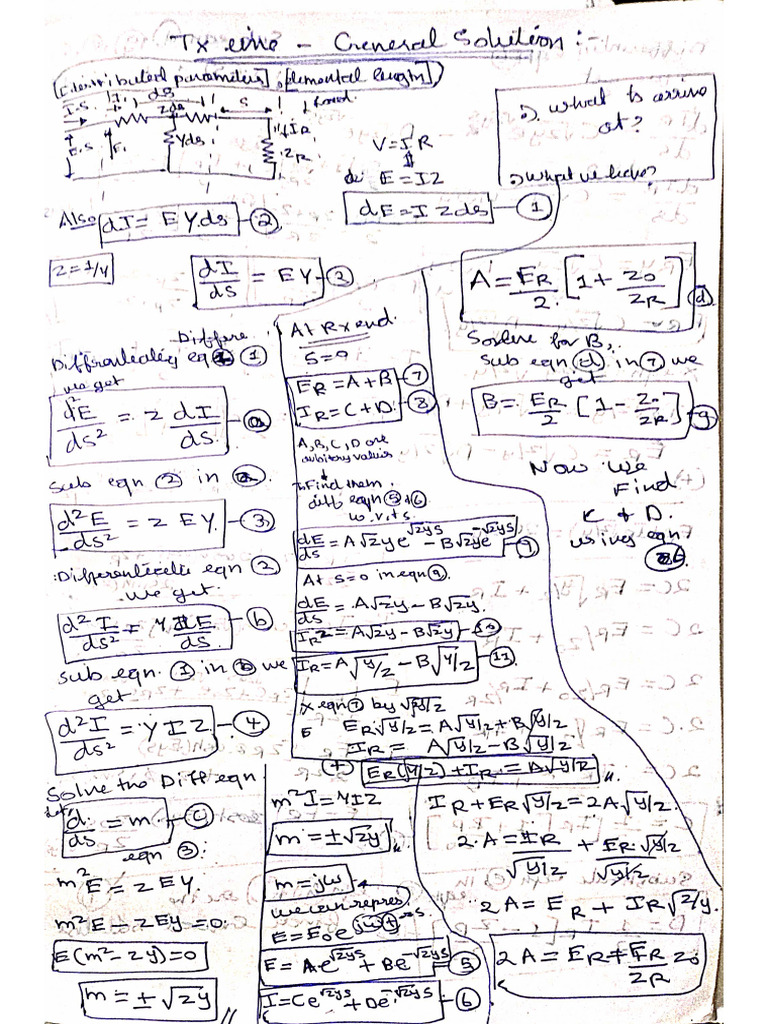 Tx line - General Solution :-
[Distributed parameters], [elemental length])
I.S. I, ds
Zds S
E.S. E, Yds IR
ZR
V = IR
E = IZ
dE = I Z ds - ①
1). What to arrive
at?
) What we have?
Also dI = E Y.ds - ②
Z = 1/Y
dI/ds = EY - ②
Differentiating eqn ①
we get
d²E/ds² = Z dI/ds - ⓐ
Sub eqn ② in ⓐ.
d²E/ds² = Z EY. - ③
Differentiate eqn ②
we get.
d²I/ds² = Y dE/ds. - ⓑ
Sub eqn. ① in ⓑ we
get
d²I/ds² = Y I Z. - ④
Solve the Diff eqn
d/ds = m - ⓒ
eqn ③:
m²E = Z EY.
m²E - ZEy = 0.
E(m² - Zy) = 0
m = ± √Zy //
At Rx end.
S = 0
ER = A + B - ⑦
IR = C + D. - ⑧
A, B, C, D are
arbitrary values
To Find them.
diff eqn ⑤ & ⑥
w.r.t s.
dE/ds = A√Zy e^√Zy s - B√Zy e^-√Zy s - ⑨
At s=0 in eqn ⑨.
dE/ds = A√Zy - B√Zy.
IRZ = A√Zy - B√Zy - ⑩
IR = A√Y/Z - B√Y/Z - ⑪
x eqn ⑦ by √Y/Z
ER√Y/Z = A√Y/Z + B√Y/Z
IR = A√Y/Z - B√Y/Z
(+) ER(Y/Z) + IR = A√Y/Z //
m²I = YIZ
m = ± √Zy //
m = jω
we can repres
E = E₀e
E = Ae^√Zy s + Be^-√Zy s - ⑤
I = Ce^√Zy s + De^-√Zy s - ⑥
A = ER/2 [1 + Z0/ZR] ⓓ
Solve for B,
sub eqn ⓓ in ⑦ we
get
B = ER/2 [1 - Z0/ZR] - ⑨
Now we
Find
C & D.
using eqn
IR + ER√Y/Z = 2A√Y/Z.
2.A = IR/√Y/Z + ER√Y/Z/√Y/Z
2A = ER + IR√Z/Y.
2A = ER + ER/ZR Z0